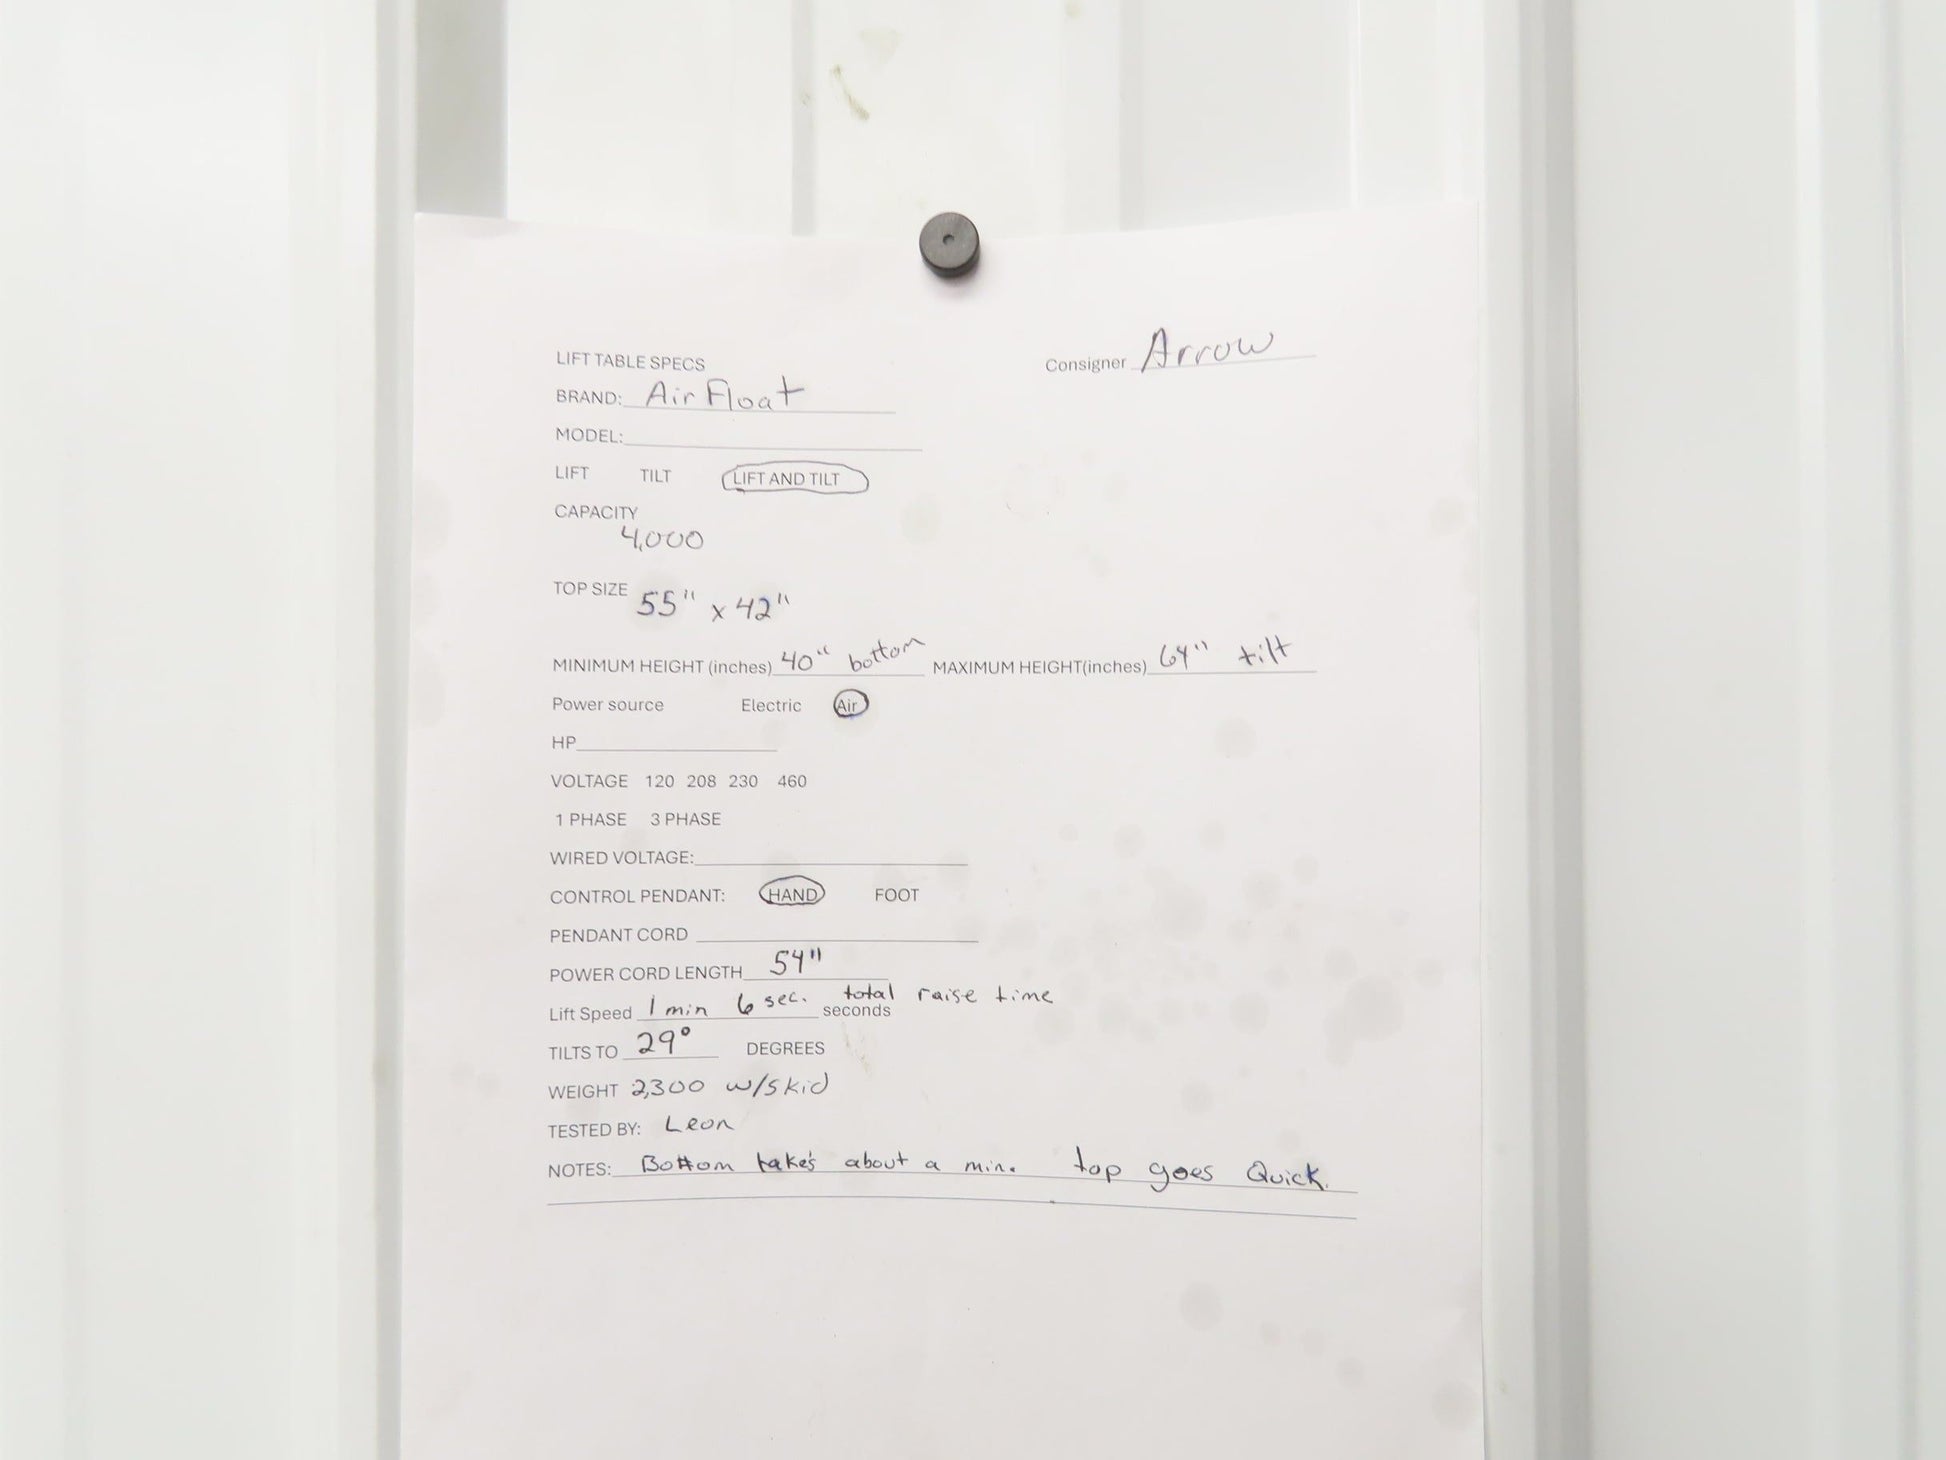 LIFT TABLE SPECS Consigner Arrow
BRAND: Air Float
MODEL:
LIFT TILT LIFT AND TILT
CAPACITY
4,000
TOP SIZE 55" x 42"
MINIMUM HEIGHT (inches) 40" bottom MAXIMUM HEIGHT(inches) 64" tilt
Power source Electric Air
HP
VOLTAGE 120 208 230 460
1 PHASE 3 PHASE
WIRED VOLTAGE:
CONTROL PENDANT: HAND FOOT
PENDANT CORD
POWER CORD LENGTH 54"
Lift Speed 1 min 6 sec. seconds total raise time
TILTS TO 29° DEGREES
WEIGHT 2,300 w/skid
TESTED BY: Leon
NOTES: Bottom takes about a min. top goes Quick.